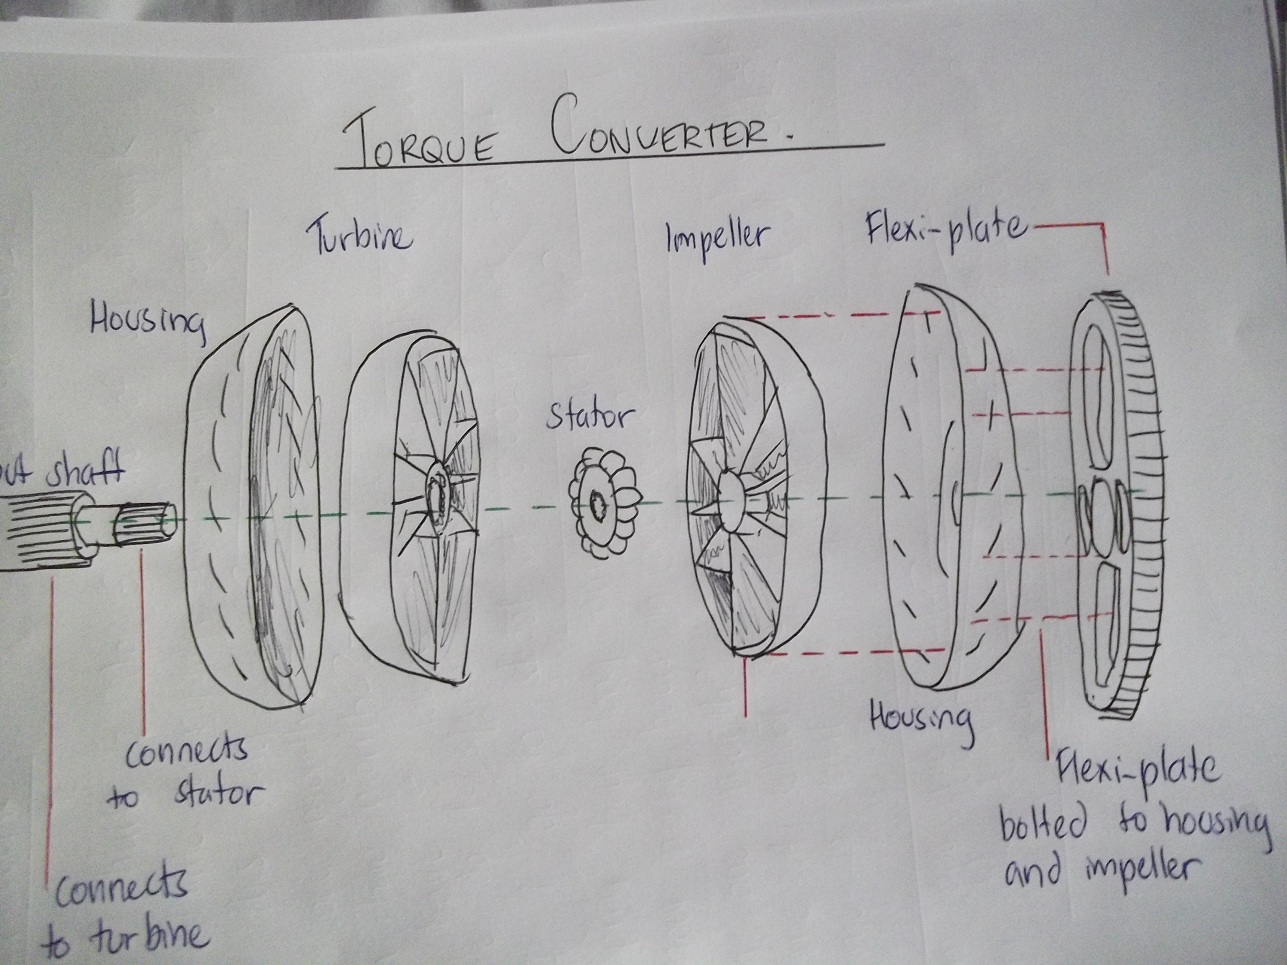 TORQUE CONVERTER.
Turbine
Impeller
Flexi-plate
Housing
Stator
shaft
Housing
connects
to stator
Flexi-plate
bolted to housing
and impeller
connects
to turbine